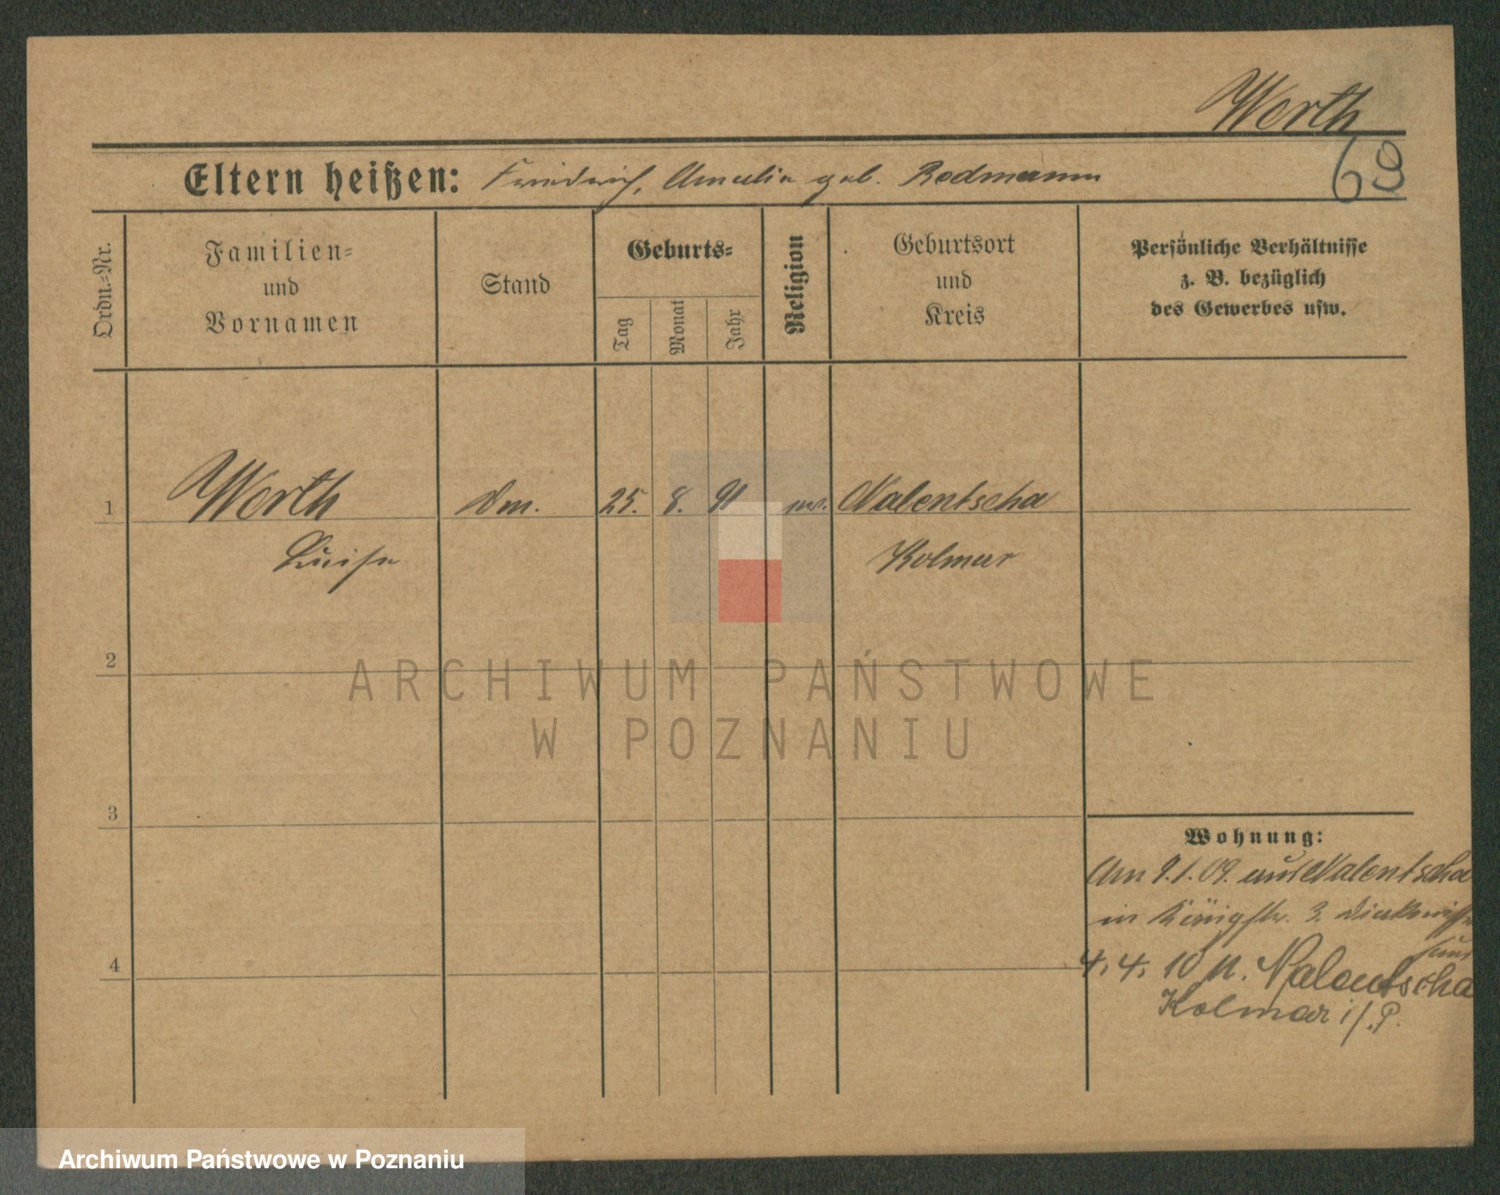 Werth
69
Eltern heißen: Friedrich, Amalie geb. Redmann
Ordn.-Nr.
Familien-
und
Vornamen
Stand
Geburts-
Tag
Monat
Jahr
Religion
Geburtsort
und
Kreis
Persönliche Verhältnisse
z. B. bezüglich
des Gewerbes usw.
1 Werth 25. 8. 91 Nalentscha
Luise Kolmar
2
3
4
Wohnung:
Am 9.1.09. aus Nalentscha
in Königstr. 3.
4. 4. 10 n. Nalentscha
Kolmar i/.P.
ARCHIWUM PAŃSTWOWE
W POZNANIU
Archiwum Państwowe w Poznaniu